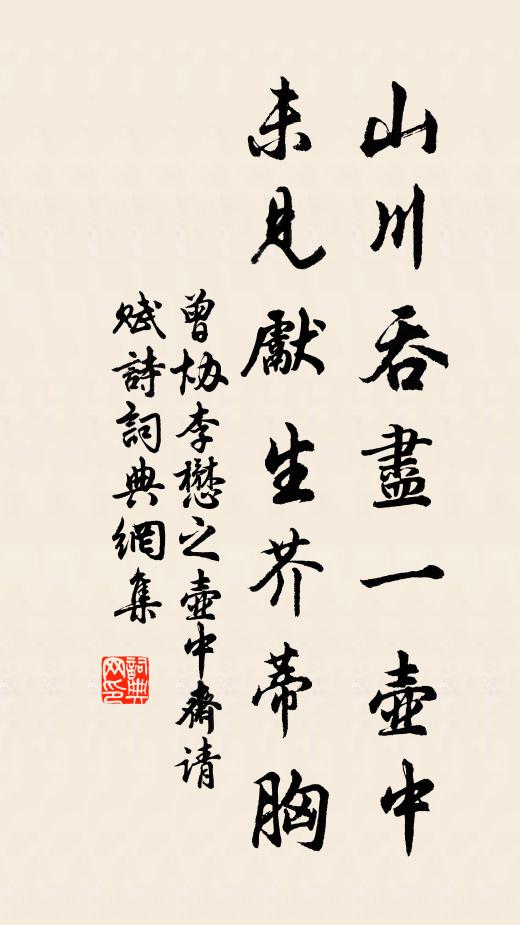 山川吞盡一壺中
未見獻生芥蒂胸
曾協李懋之壺中齋請
賦詩詞典網集
詞典網印